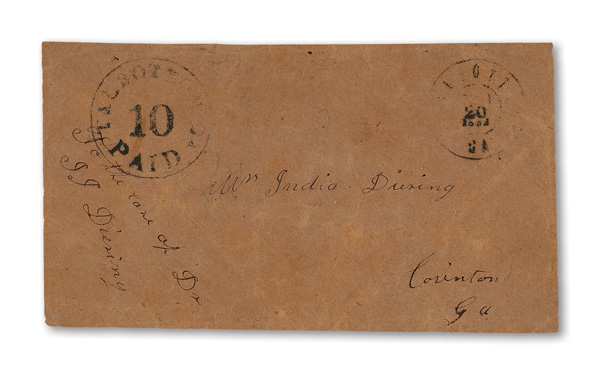 10
PAID
20
GA
Mrs India Diering
To the care of Dr
Diering
Covinton
Ga